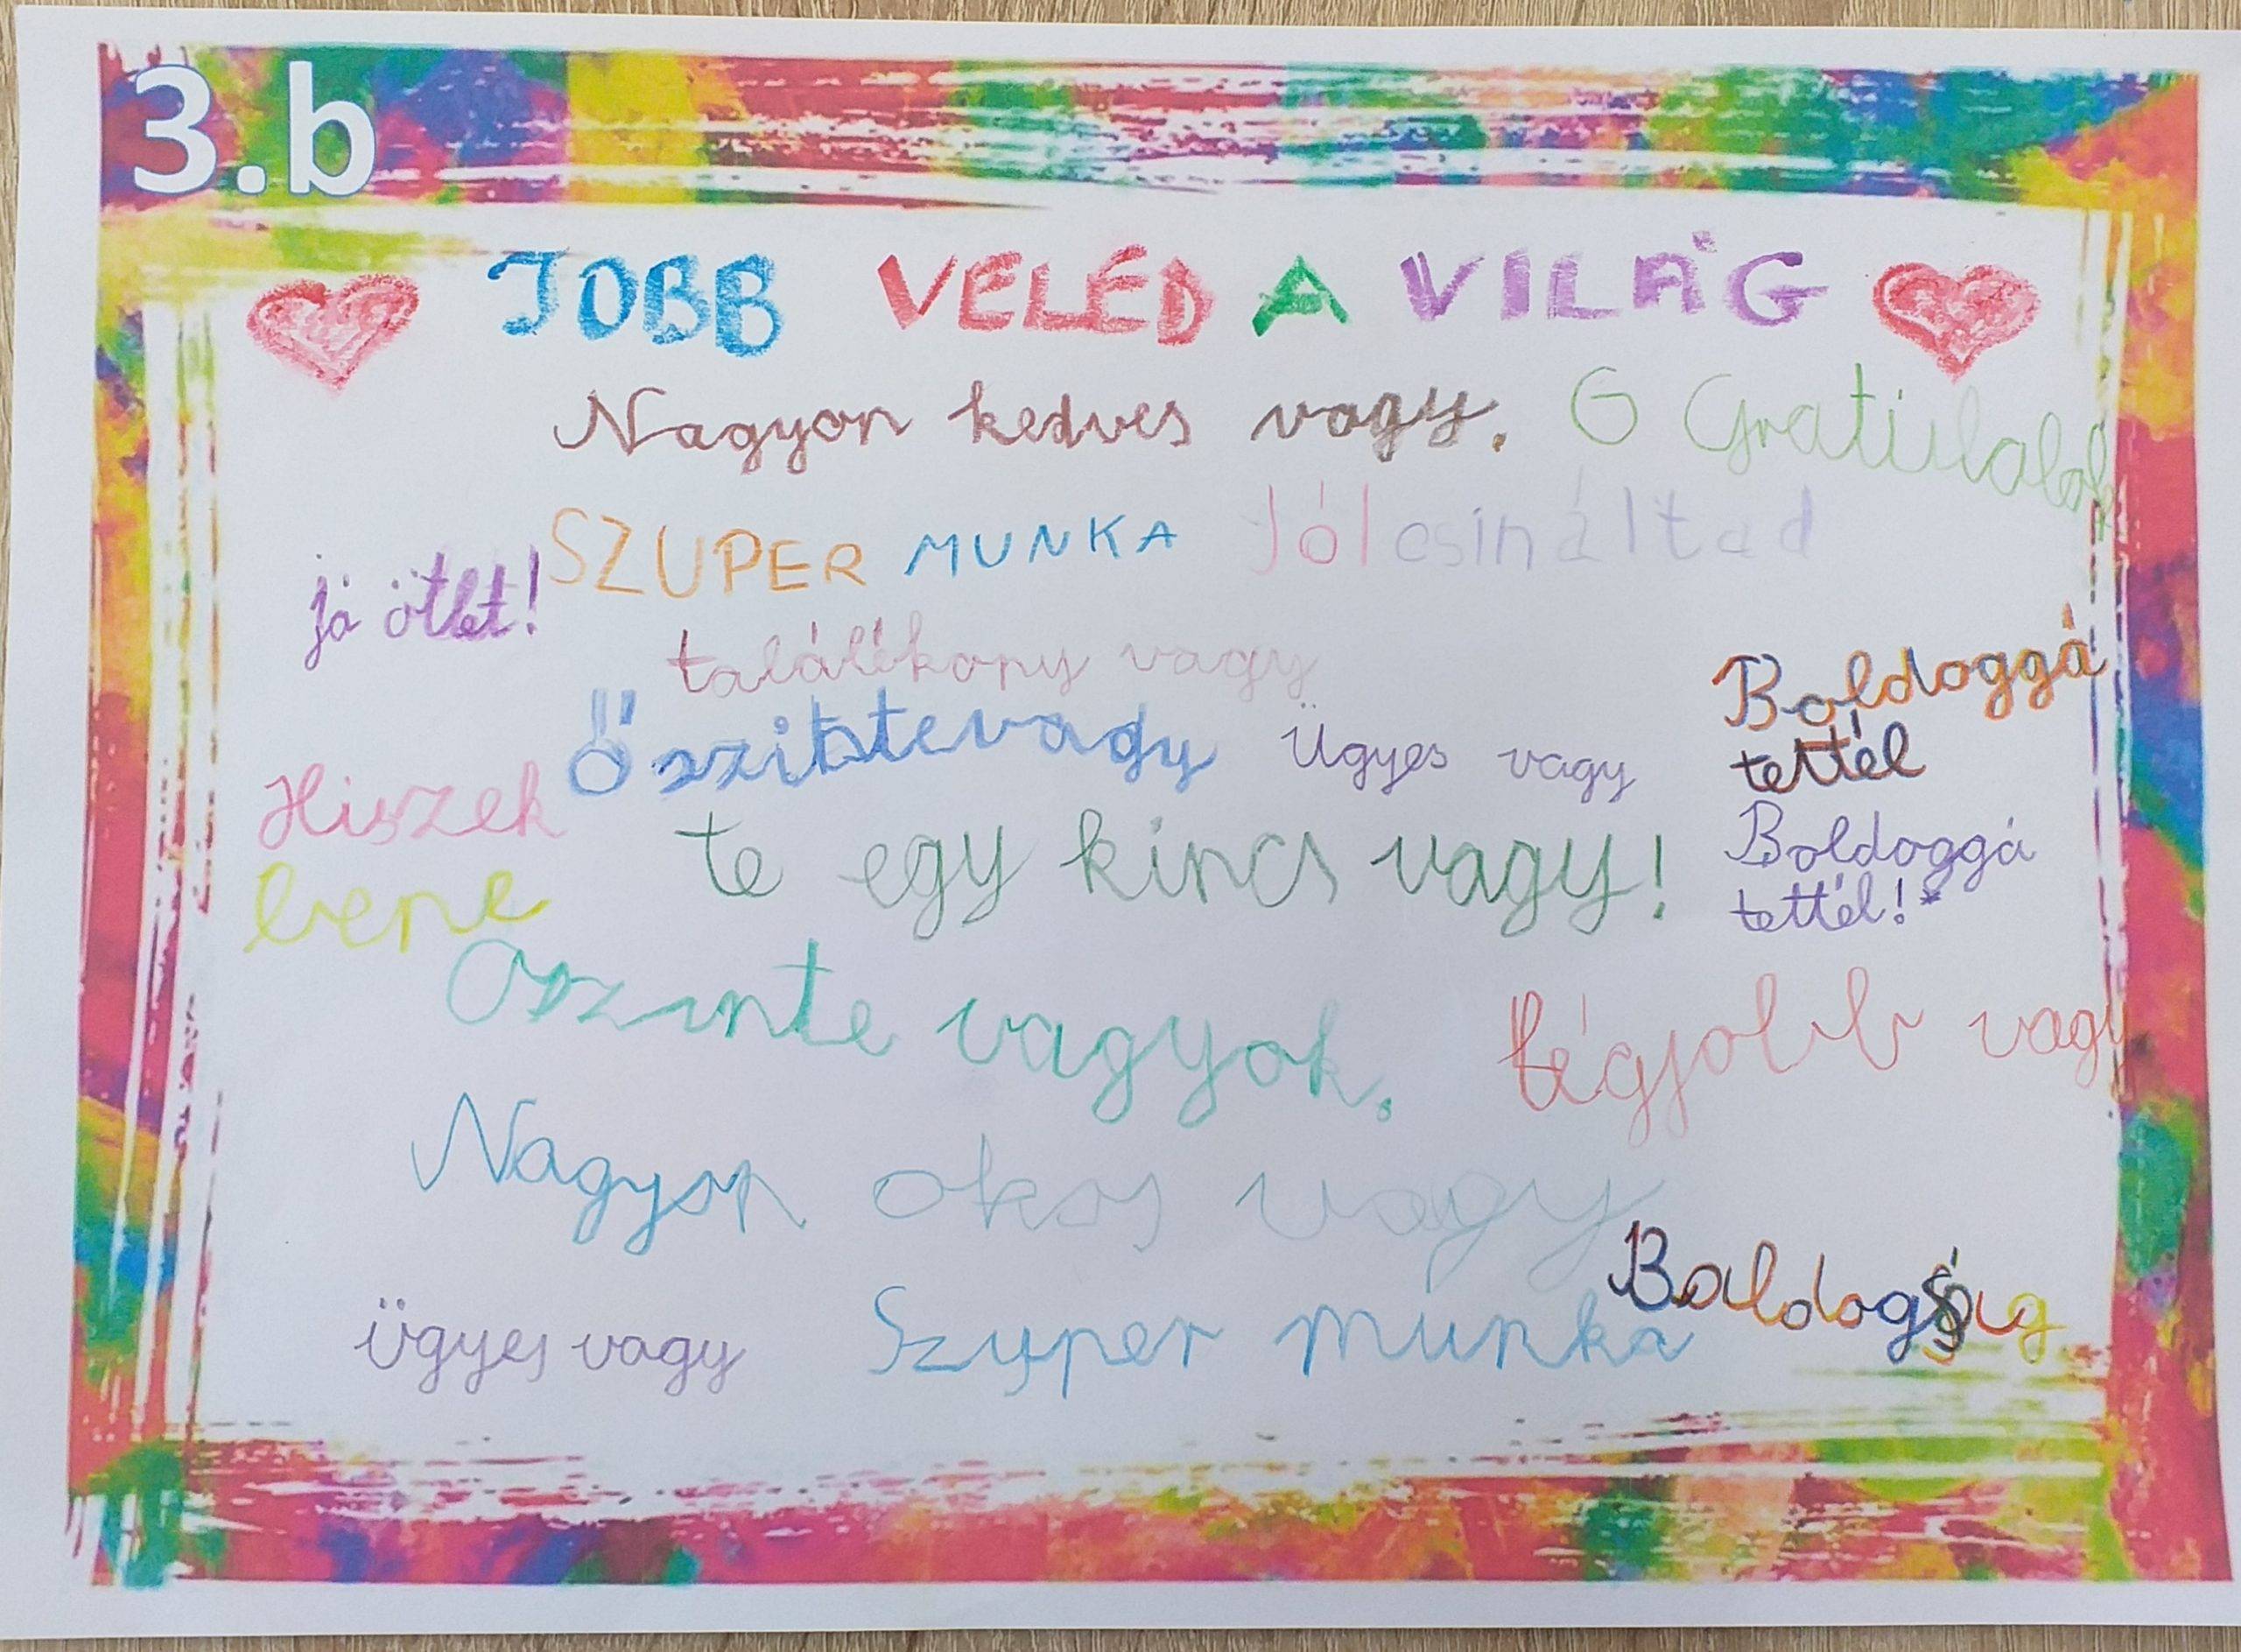 3.b
JOBB VELED A VILÁG
Nagyon kedves vagy. G Gratiulalok
SZUPER MUNKA Jól csináltad
jó ötlet!
találékony vagy
Boldoggá
tettél
Őszitntevagy Ügyes vagy
Hiszek
bene
te egy kincs vagy!
Boldoggá
tettél!*
Oszinte vagyok. légjobb vagy
Nagyon okos vagy
Baldogság
ügyes vagy Szuper munka